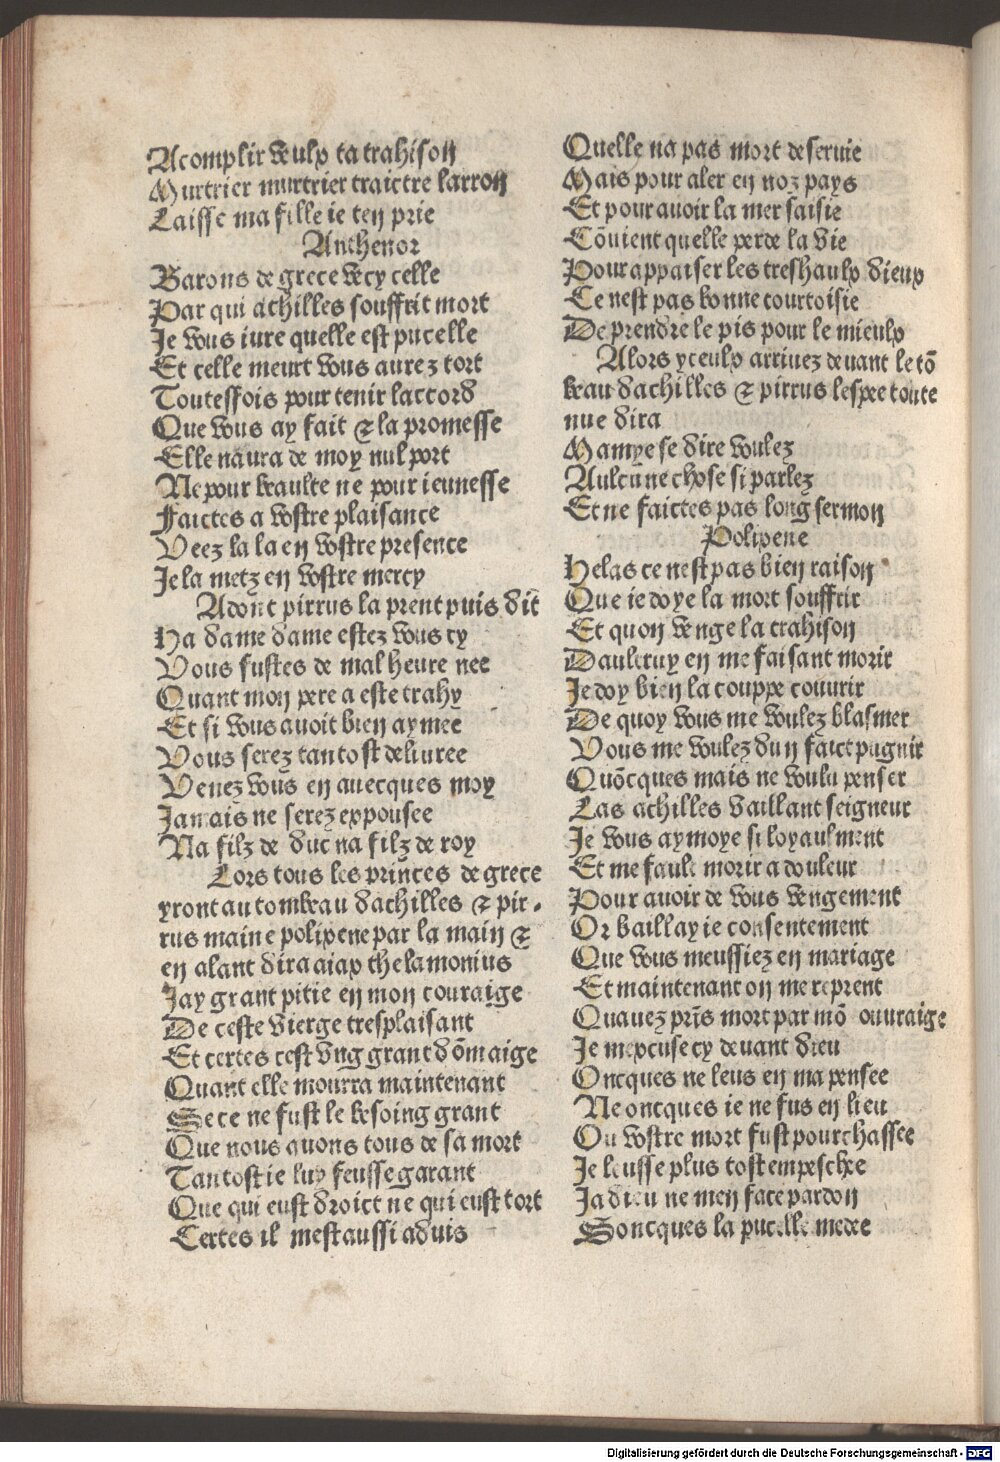 Acomplir veulx ta trahison
Murtrier murtrier traictre larron
Laisse ma fille ie ten prie
Anthenor
Barons de grece vecy celle
Par qui achilles souffrit mort
Je vous iure quelle est pucelle
Et celle meurt vous aurez tort
Toutessois pour tenir laccord
Que vous ay fait & la promesse
Elle naura de moy nul port
Ne pour beaulte ne pour ieunesse
Faictes a vostre plaisance
Veez la la en vostre presence
Je la metz en vostre mercy
Adonc pirrus la prent puis dit
Ha dame dame estez vous cy
Vous fustes de mal heure nee
Quant mon pere a este trahy
Et si vous auoit bien aymee
Vous serez tantost deliuree
Venez vous en auecques moy
Jamais ne serez expousee
Na filz de duc na filz de roy
Lors tous les princes de grece
yront au tombeau dachilles & pir
rus maine polixene par la main &
en alant dira aiax thelamonius
Jay grant pitie en mon couraige
De ceste vierge tresplaisant
Et certes cest vng grant dōmaige
Quant elle mourra maintenant
Se ce ne fust le besoing grant
Que nous auons tous de sa mort
Tantost ie luy feusse garant
Que qui eust droict ne qui eust tort
Certes il mest aussi aduis
Quelle na pas mort deseruie
Mais pour aler en noz pays
Et pour auoir la mer saisie
Cōuient quelle perde la vie
Pour appaiser les treshaulx dieux
Ce nest pas bonne courtoisie
De prendre le pis pour le mieulx
Alors yceulx arriuez deuant le tō
beau dachilles & pirrus lespee toute
nue dira
Mamye se dire voulez
Aulcune chose si parlez
Et ne faictes pas long sermon
Polixene
Helas ce nest pas bien raison
Que ie doye la mort souffrir
Et quon venge la trahison
Daultruy en me faisant morir
Je doy bien la couppe couurir
De quoy vous me voulez blasmer
Vous me voulez dun faict pugnir
Quōcques mais ne voulu penser
Las achilles vaillant seigneur
Je vous aymoye si loyaulment
Et me fault morir a douleur
Pour auoir de vous vengement
Or baillay ie consentement
Que vous meussiez en mariage
Et maintenant on me reprent
Quauez pris mort par mō ouuraige
Je mexcuse cy deuant dieu
Oncques ne leus en ma pensee
Ne oncques ie ne fus en lieu
Ou vostre mort fust pourchassee
Je leusse plus tost empeschee
Ja dieu ne men face pardon
Soncques la pucelle
Digitalisierung gefördert durch die Deutsche Forschungsgemeinschaft - DFG